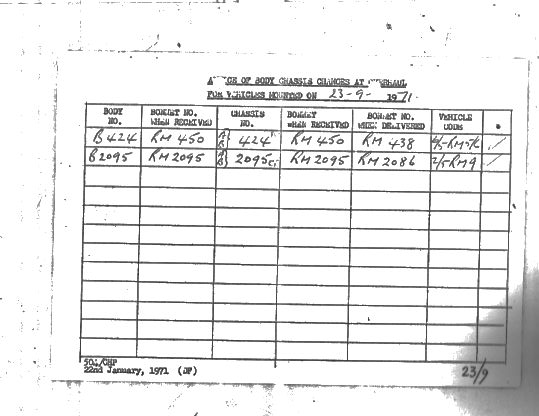 ADVICE OF BODY CHASSIS CHANGES AT OVERHAUL
FOR VEHICLES MOUNTED ON 23-9- 1971.
BODY NO. BONNET NO. WHEN RECEIVED CHASSIS NO. BONNET WHEN RECEIVED BONNET NO. WHEN DELIVERED VEHICLE CODE
B424 RM 450 424 RM 450 RM 438
B2095 RM 2095 2095 RM 2095 RM 2086 2/5RM9
504/CHP
22nd January, 1971 (DP)
23/9